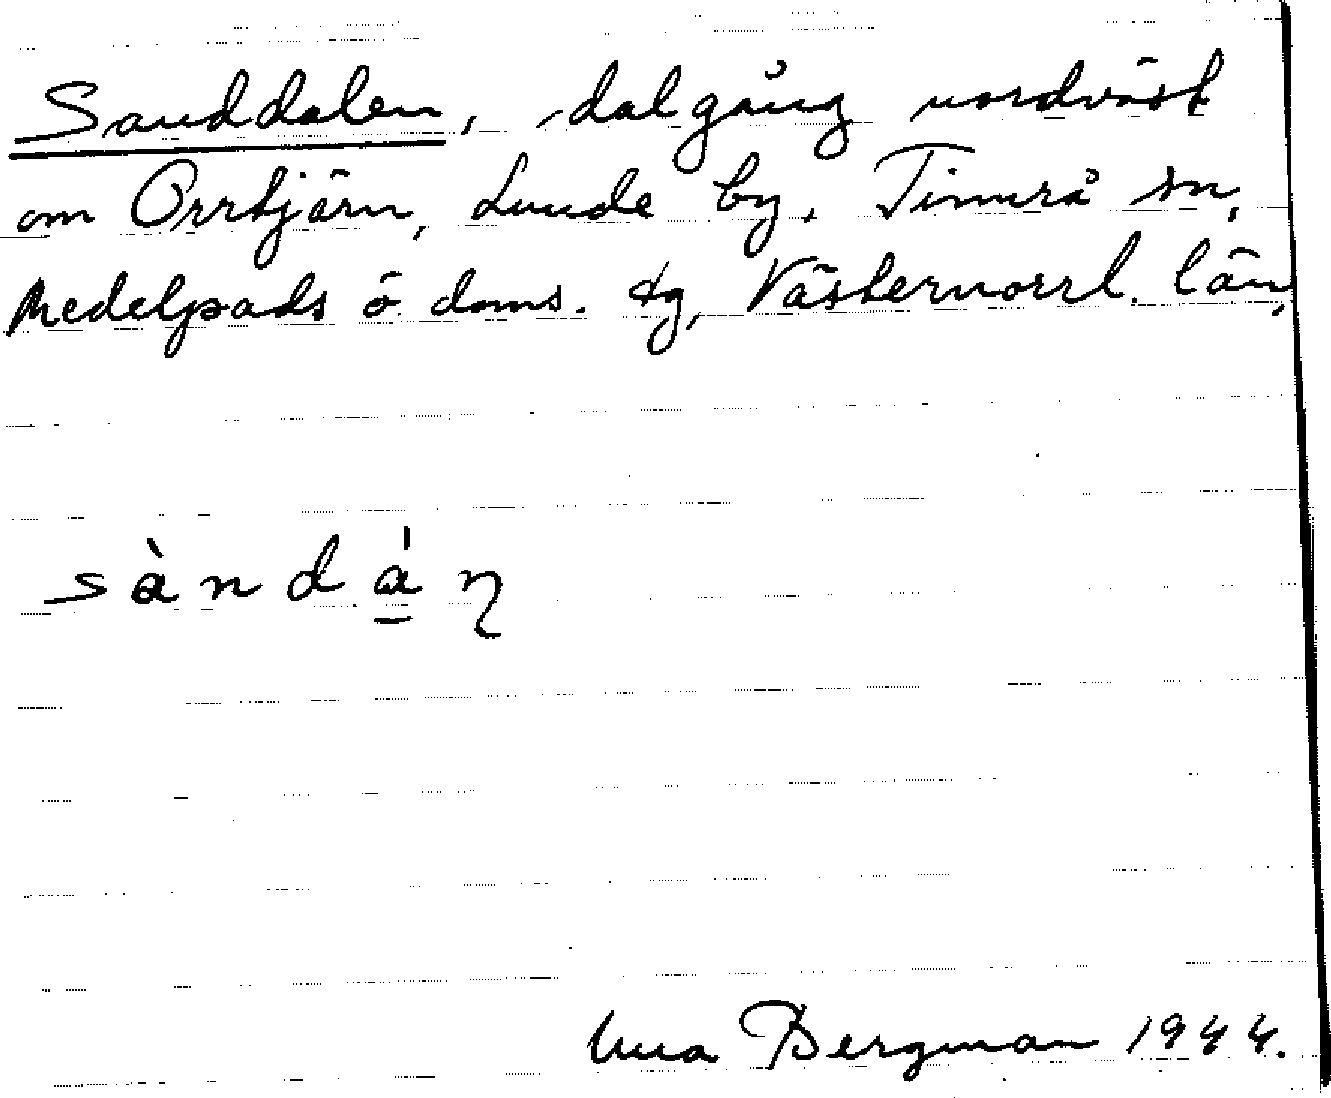 Sanddalen, dalgång nordväst
om Orrtjärn, Lunde by, Timrå sn,
Medelpads ö doms. tg, Västernorrl. län,
sàndá̱ŋ
Una Bergman 1944.